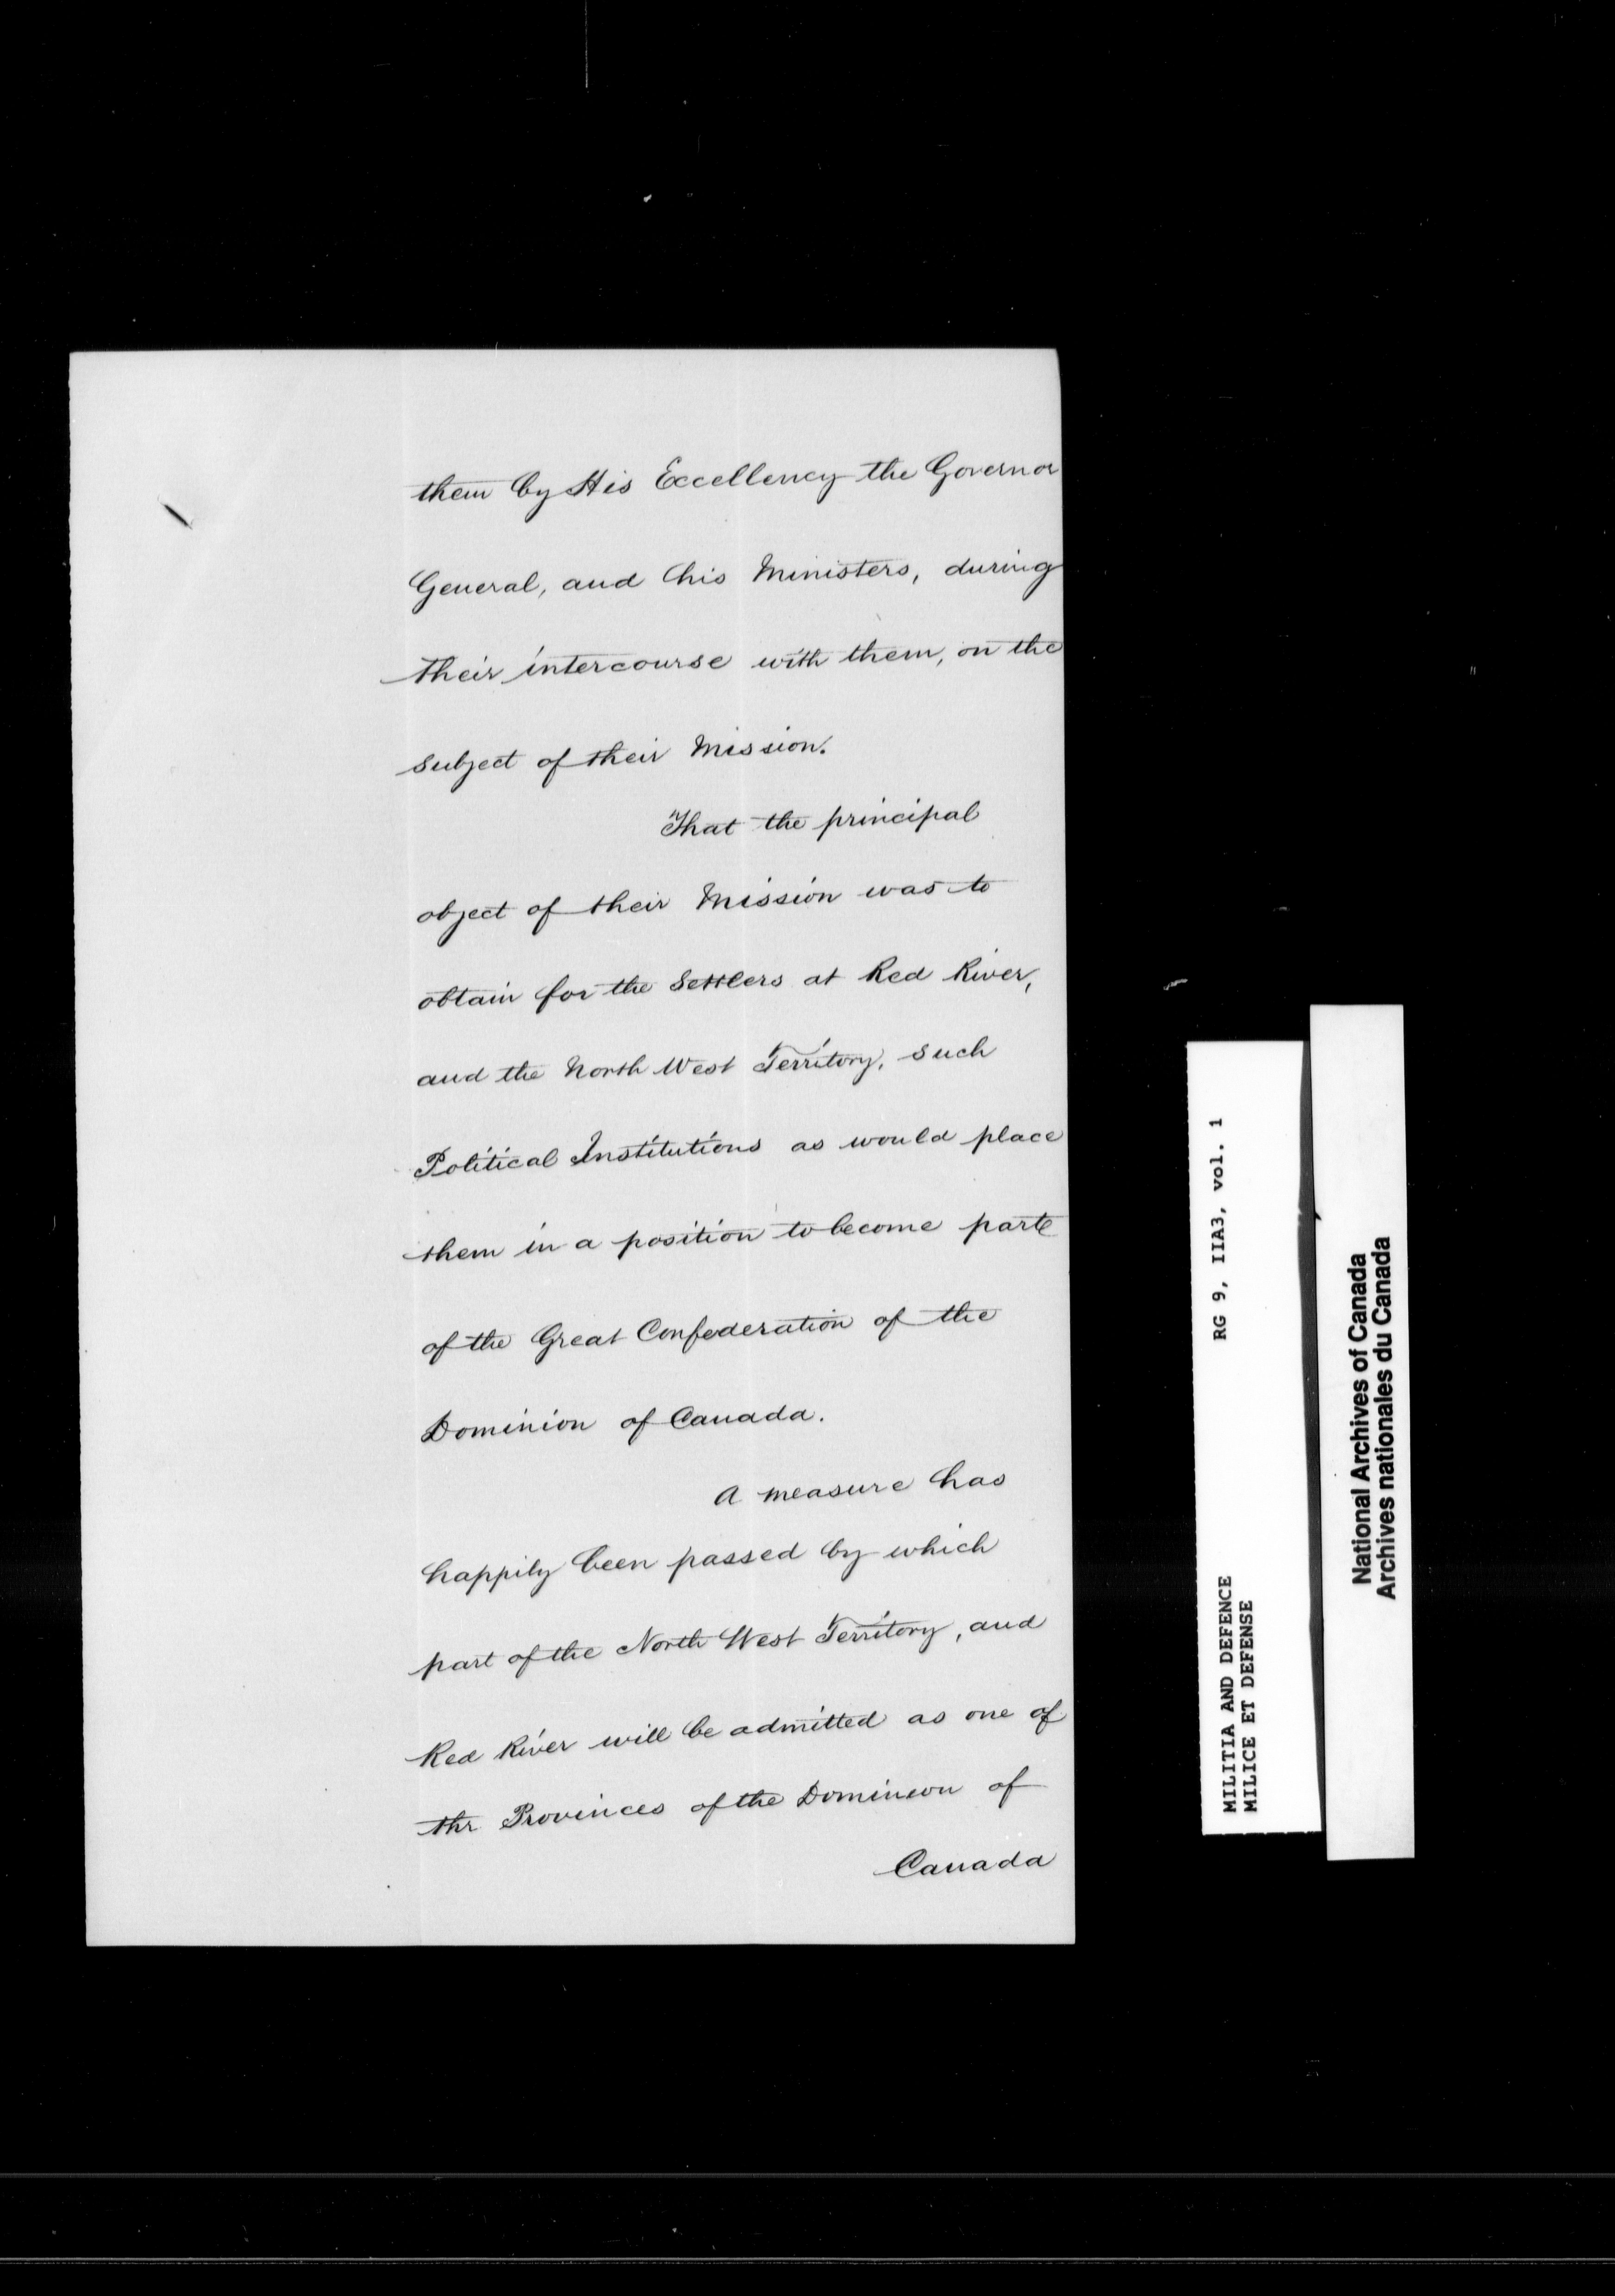 them by His Excellency the Governor
General, and his Ministers, during
their intercourse with them, on the
subject of their Mission.
That the principal
object of their Mission was to
obtain for the Settlers at Red River,
and the North West Territory, such
Political Institutions as would place
them in a position to become part
of the Great Confederation of the
Dominion of Canada.
A measure has
happily been passed by which
part of the North West Territory, and
Red River will be admitted as one of
the Provinces of the Dominion of
Canada
MILITIA AND DEFENCE RG 9, IIA3, vol. 1
MILICE ET DEFENSE
National Archives of Canada
Archives nationales du Canada